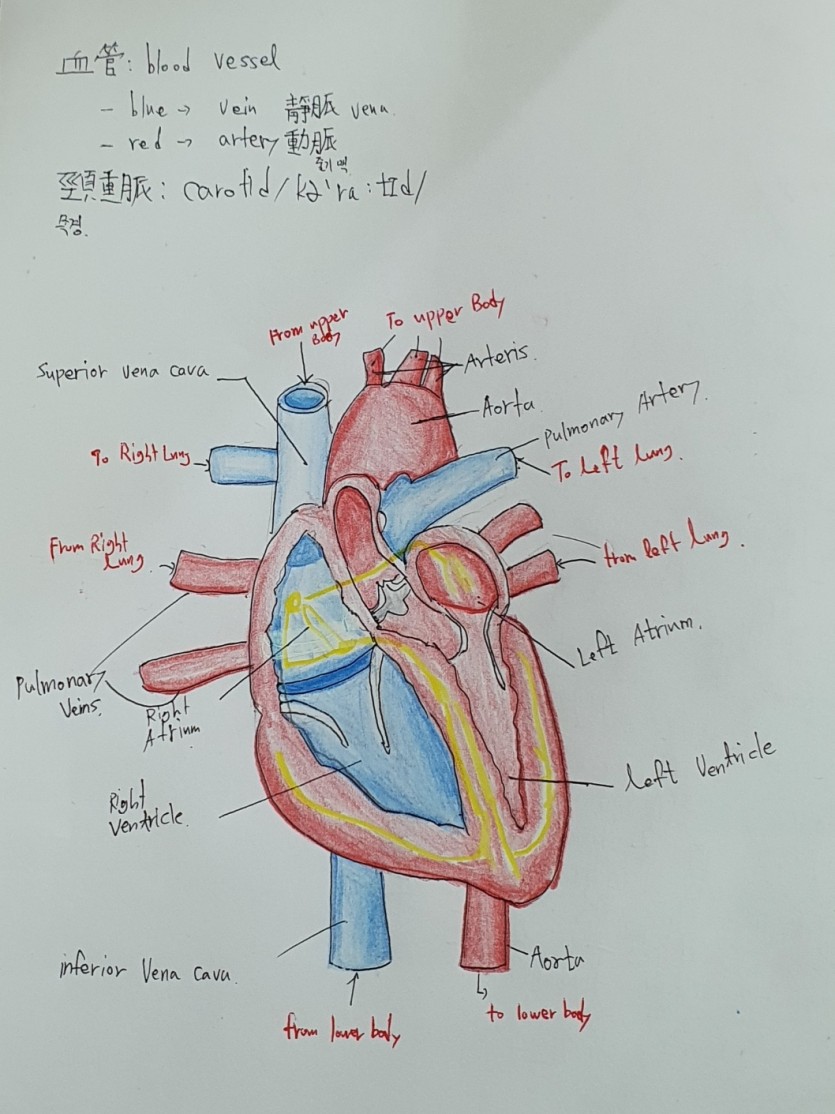 血管: blood vessel
- blue → vein 靜脈 vena.
- red → artery 動脈
줄기 맥
頸動脈: carotid/kəˈrɑːtɪd/
목경.
From upper Body
To upper Body
Superior vena cava
Arteris.
Aorta
Pulmonary Artery.
To Right Lung
To Left Lung.
From Right Lung
from left lung.
Left Atrium.
Pulmonary Veins.
Right Atrium
Right Ventricle.
left Ventricle
inferior Vena cava.
Aorta
from lower body
to lower body